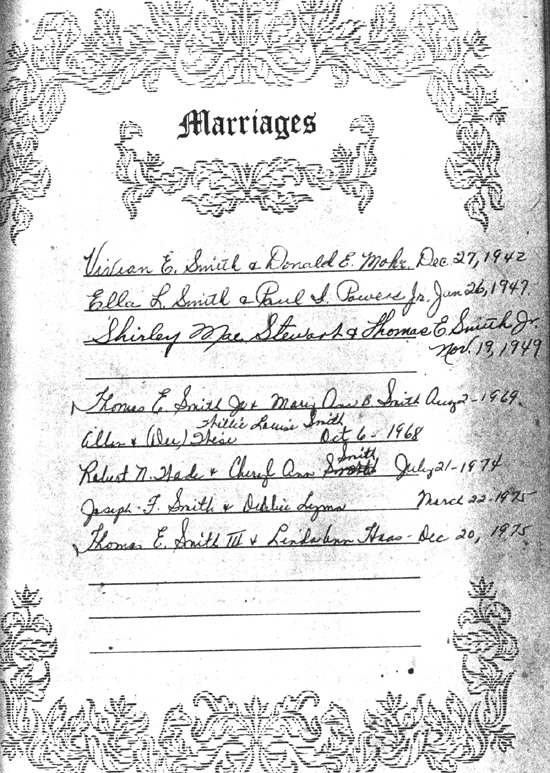 Marriages
Vivian E. Smith & Donald E. Mohr. Dec 27, 1942
Ella L. Smith & Paul S. Powers Jr. Jan 26, 1947.
Shirley Mae Stewart & Thomas E Smith Jr.
Nov. 19, 1949
Thomas E Smith Jr & Mary Ann B Smith Aug 2-1969.
Louise Smith
Allen & (Dee) Oct 6 - 1968
Smith
Robert N. Wade & Cheryl Ann July 21-1974
Joseph F. Smith & Debbie March 22-1975
Thomas E. Smith III & Linda Ann Haas - Dec 20, 1975